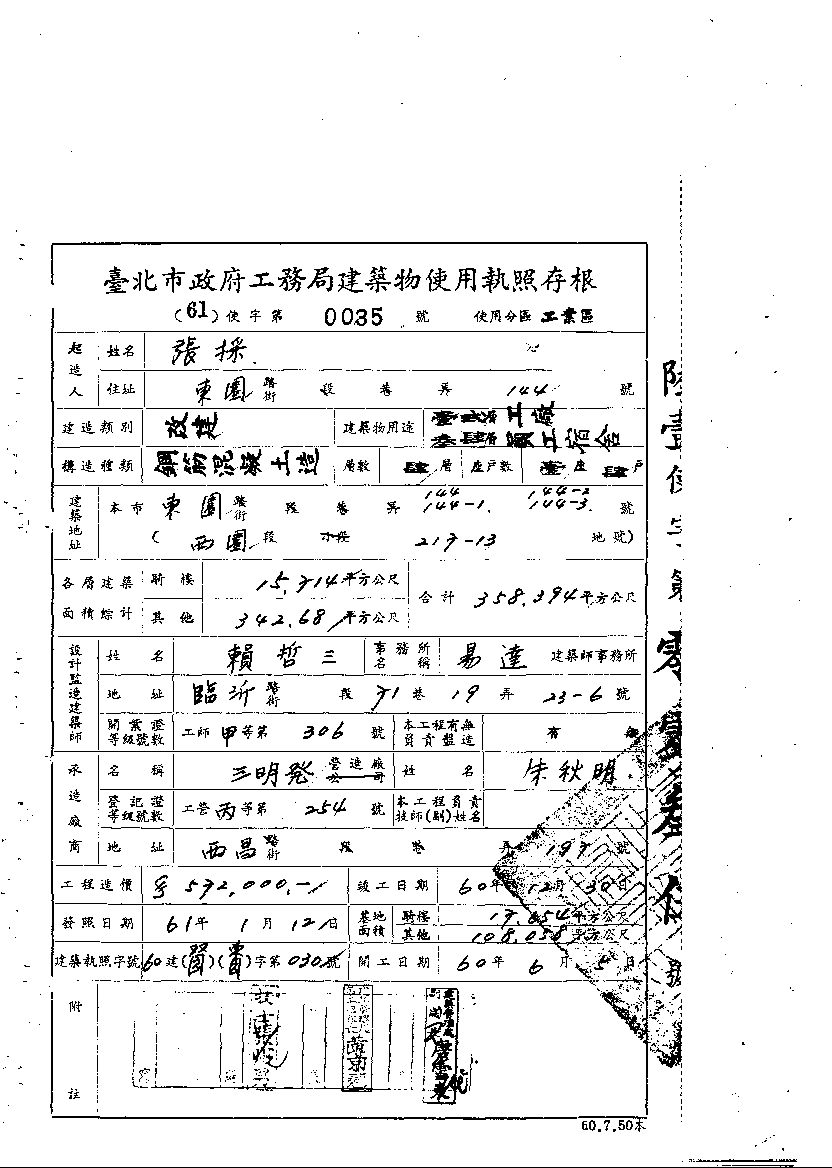 臺北市政府工務局建築物使用執照存根
(61)使字第 0035 號 使用分區 工業區
起造人 姓名 張採
住址 東園 路街 段 巷 弄 144 號
建造類別 改建 建築物用途 工廠 員工宿舍
構造種類 鋼筋混凝土造 層數 肆層 座戶數 壹座 肆戶
建築地址 本市 東園 路街 段 巷 弄 144 144-1. 144-2 144-3. 號
( 西園 段 小段 217-13 地號)
各層建築面積綜計 騎樓 15.714平方公尺 合計 358.394平方公尺
其他 342.68平方公尺
設計監造建築師 姓名 賴哲三 事務所名稱 易達 建築師事務所
地址 臨沂 路街 段 71 巷 19 弄 23-6 號
開業證等級號數 工師 甲 等第 306 號 本工程有無負責監造 有 無
承造廠商 名稱 三明發 營造廠公司 姓名 朱秋明.
登記證等級號數 工營 丙 等第 254 號 本工程負責技師(副)姓名
地址 西昌 路街 段 巷 弄 197 號
工程造價 572,000.- 竣工日期 60年 12月 30日
發照日期 61年 1月 12日 基地面積 騎樓 17.654平方公尺
其他 108.058平方公尺
建築執照字號 60建( )( )字第030 號 開工日期 60年 6月 5日
附註
60.7.50本
陸壹使字第零零叁伍號